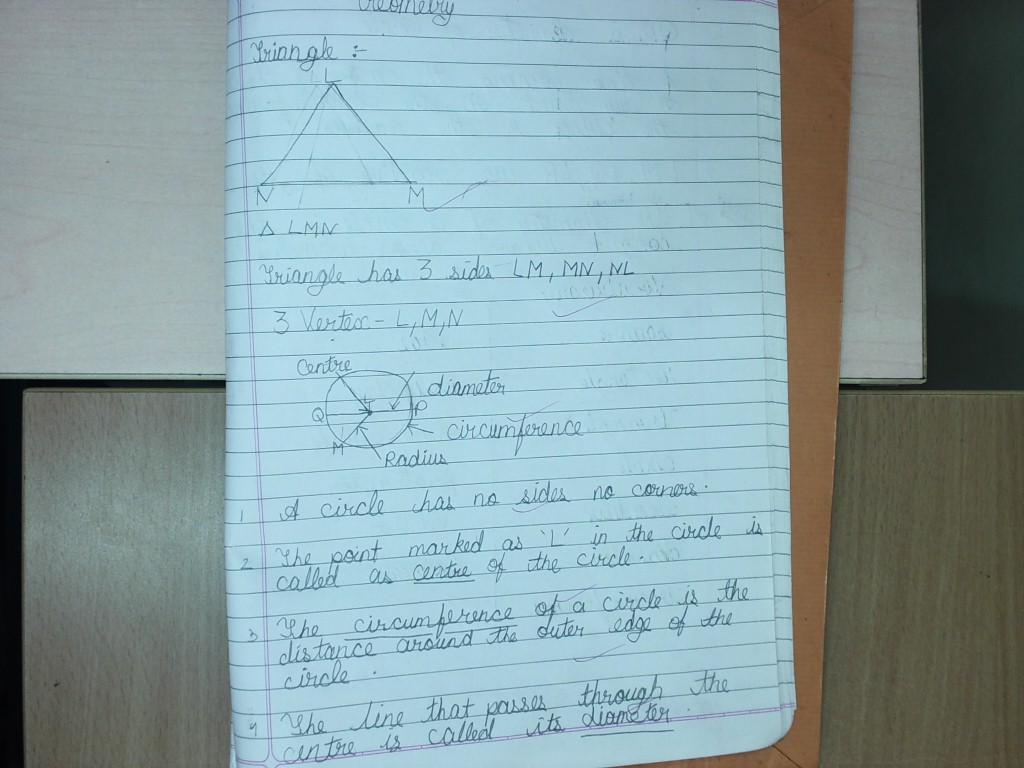 Geometry
Triangle :-
L
N M
△ LMN
Triangle has 3 sides LM, MN, NL
3 Vertex - L, M, N
Centre
diameter
L
Q P
circumference
M
Radius
1 A circle has no sides no corners.
2 The point marked as 'L' in the circle is
called as centre of the circle.
3 The circumference of a circle is the
distance around the outer edge of the
circle.
4 The line that passes through the
centre is called its diameter.